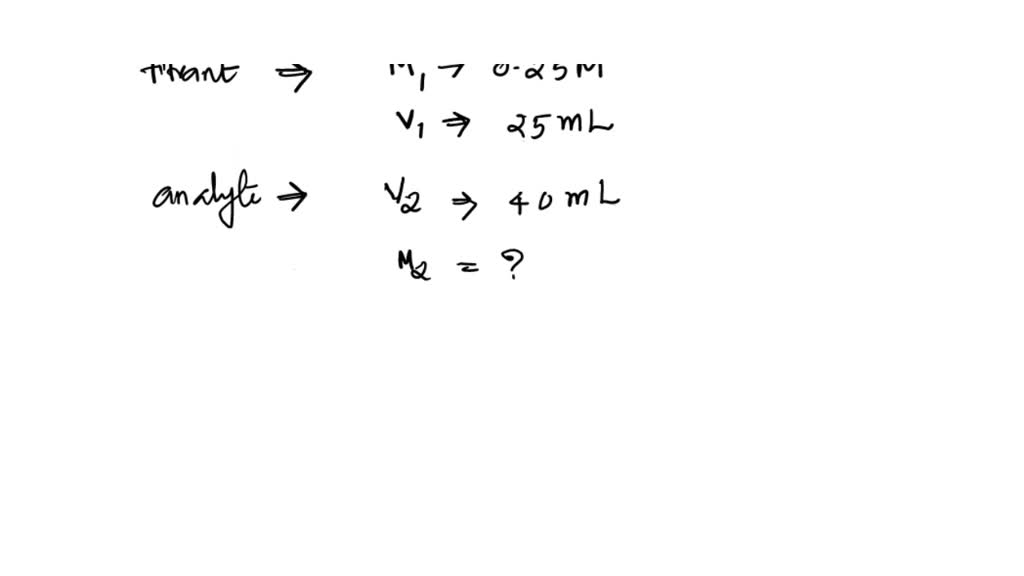 titrant ⇒ M1 → 0.25M
V1 ⇒ 25 mL
analyte ⇒ V2 ⇒ 40 mL
M2 = ?